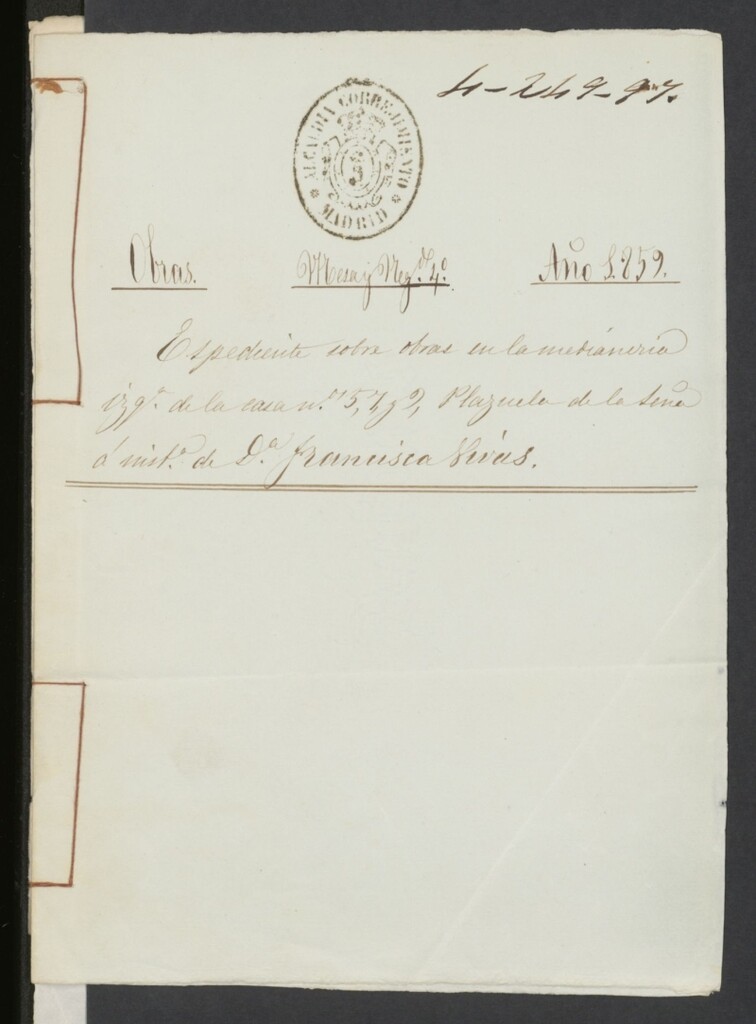 4-249-97.
ALCALDIA CORREJIMIENTO
MADRID
Obras. Mesa y Neg.do 4.º Año 1.859.
Espediente sobre obras en la medianeria
izq.ª de la casa n.os 5, 7 y 2, Plazuela de la Leña
á inst.ª de D.ª Francisca Vivas.